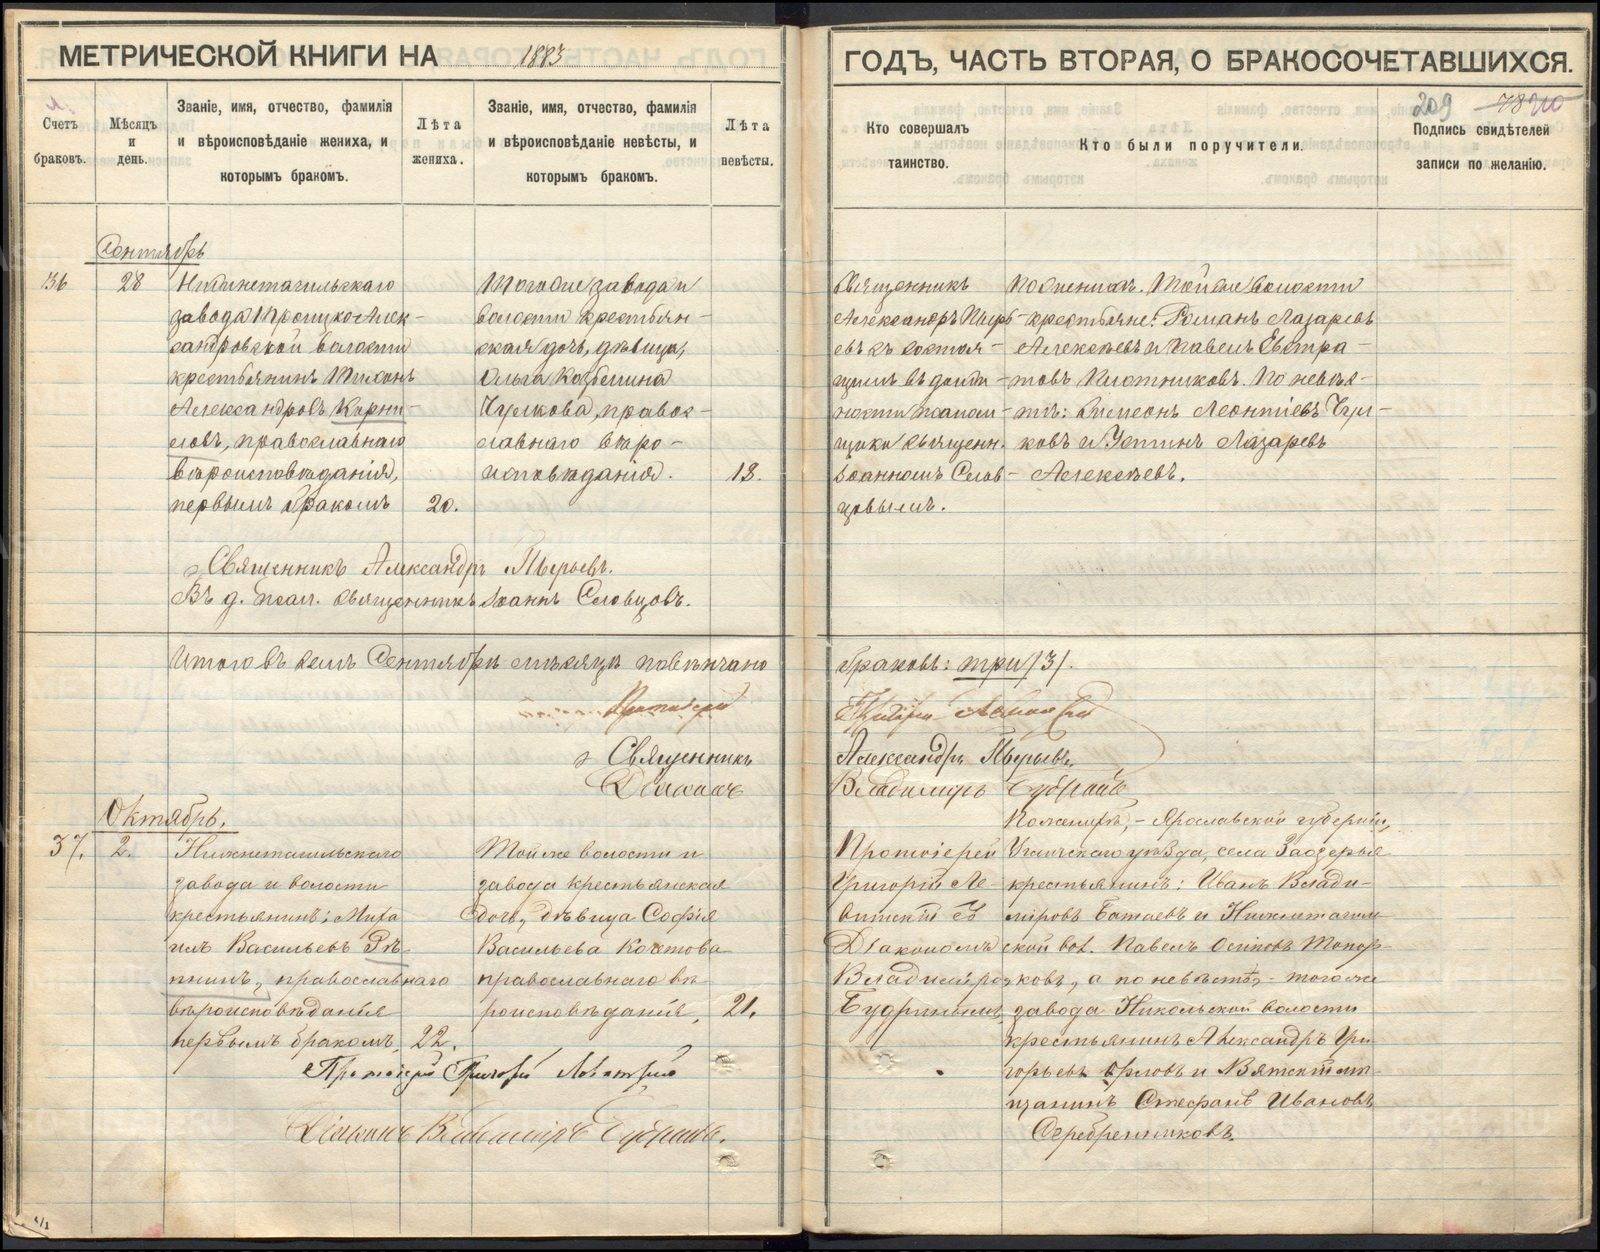 МЕТРИЧЕСКОЙ КНИГИ НА 1883
ГОДЪ, ЧАСТЬ ВТОРАЯ, О БРАКОСОЧЕТАВШИХСЯ.
209
Счетъ браковъ.
Мѣсяцъ и день.
Званіе, имя, отчество, фамилія
и вѣроисповѣданіе жениха, и
которымъ бракомъ.
Лѣта жениха.
Званіе, имя, отчество, фамилія
и вѣроисповѣданіе невѣсты, и
которымъ бракомъ.
Лѣта невѣсты.
Кто совершалъ
таинство.
Кто были поручители.
Подпись свидѣтелей
записи по желанію.
Сентябрь
36
28
Нижнетагильскаго
завода Троицко Алек-
сандровской волости
крестьянинъ Тихонъ
Александровъ Корни-
ловъ, православнаго
вѣроисповѣданія,
первымъ бракомъ
20.
Тогоже завода и
волости крестьян-
ская дочь, дѣвица,
Ольга Козьмина
Чулкова, правос-
лавнаго вѣро-
исповѣданія.
18.
Священникъ
Александръ
евъ съ состоя-
щимъ въ должн
ности псалом-
щика священн.
Іоанномъ Слов-
цовымъ.
По женихѣ: Тойже волости
крестьяне: Романъ Лазаревъ
Алексѣевъ и Павелъ Евстра-
товъ Плотниковъ. По невѣс-
тѣ: Симеонъ Леонтіевъ Чул-
ковъ и Устинъ Лазаревъ
Алексѣевъ.
Священникъ Александръ
Въ д. псал. священникъ Іоаннъ Словцовъ.
Итого въ семъ Сентябрѣ мѣсяцѣ повѣнчано
браковъ: три /3/.
Протоіерей
Григорій
Священникъ
Александръ
Діаконъ
Владимиръ Будринъ
Октябрь.
37.
2.
Нижнетагильскаго
завода и волости
крестьянинъ: Миха
илъ Васильевъ Рѣ-
пинъ, православнаго
вѣроисповѣданія
первымъ бракомъ,
22.
Тойже волости и
завода крестьянская
дочь, дѣвица Софія
Васильева Кохтова
православнаго вѣ-
роисповѣданія,
21.
Протоіерей
Григорій Ле-
витскій съ
Діакономъ
Владиміро
Будринымъ
По женихѣ, - Ярославской губерніи,
Угличскаго уѣзда, села Заозерья
крестьянинъ: Иванъ Влади-
міровъ Батаевъ и Нижнетагиль
ской вол. Павелъ Осиповъ Топор-
ковъ, а по невѣстѣ, - тогоже
завода Никольской волости
крестьянинъ Александръ Гри
горьевъ Орловъ и Вятскій мѣ-
щанинъ Стефанъ Ивановъ
Серебренниковъ.
Протоіерей Григорій Левитскій
Діаконъ Владиміръ Будринъ.